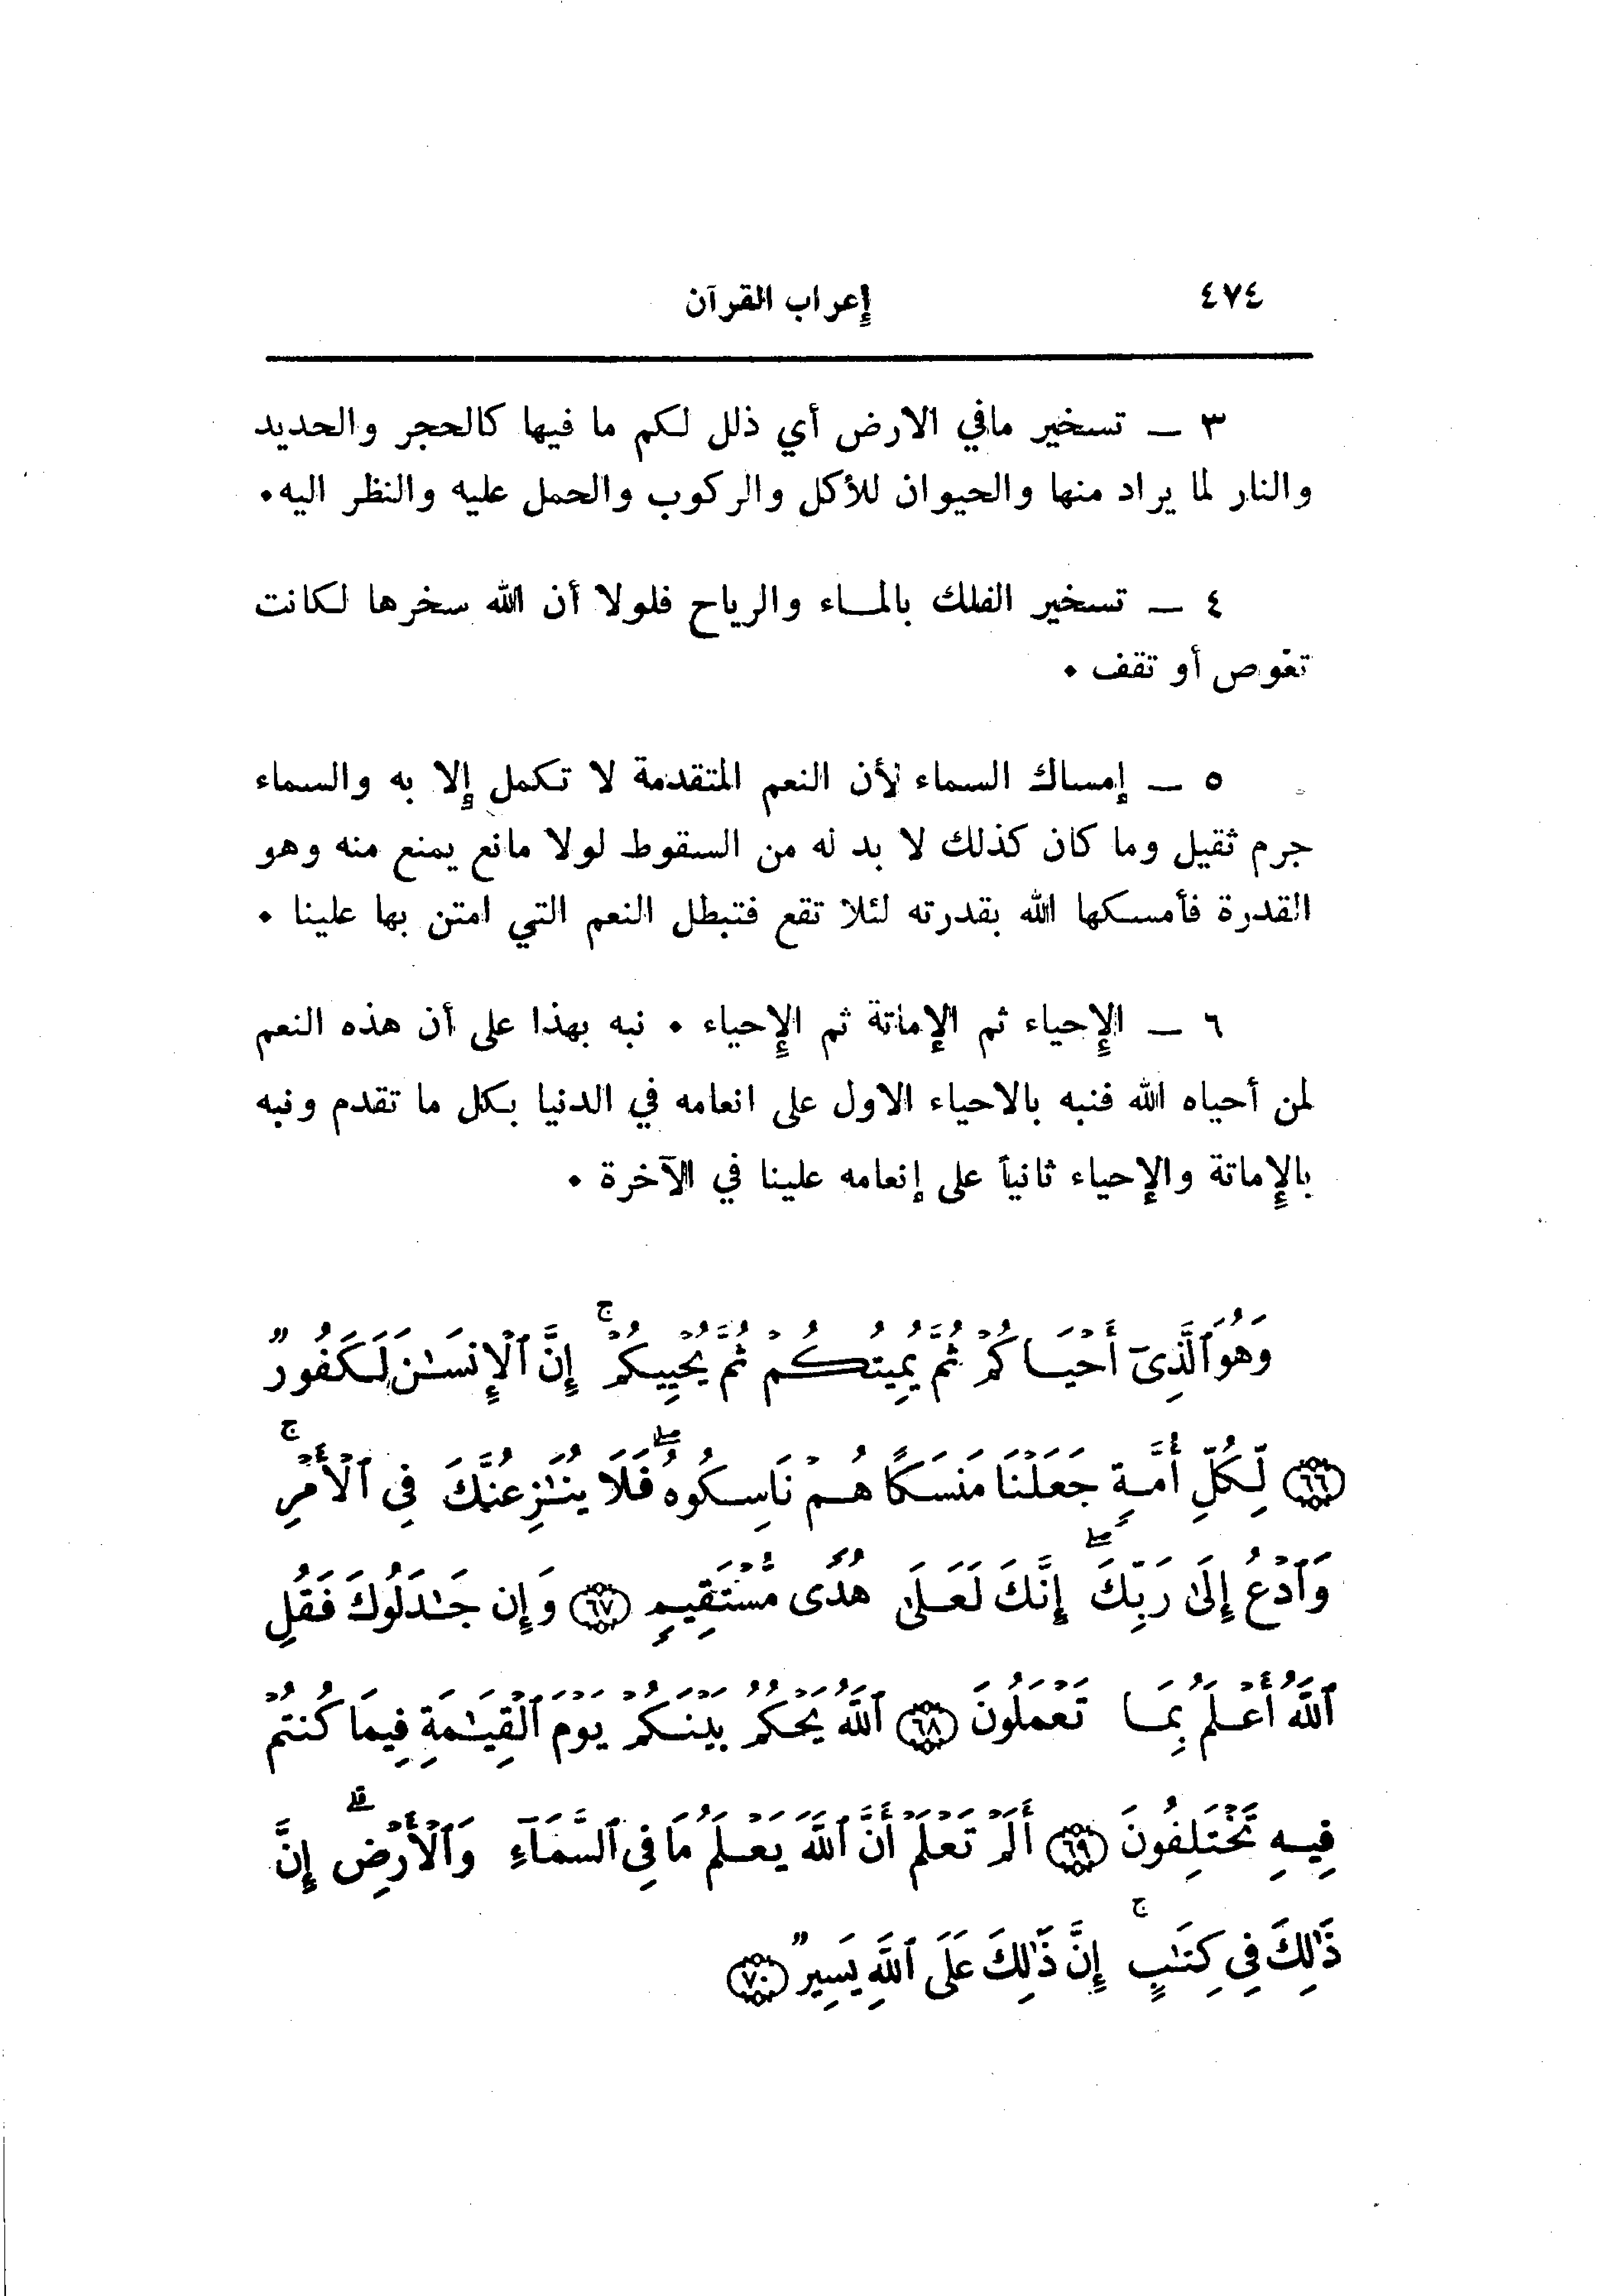 ٤٧٤ إعراب القرآن
٣ ــ تسخير مافي الارض أي ذلل لكم ما فيها كالحجر والحديد
والنار لما يراد منها والحيوان للأكل والركوب والحمل عليه والنظر اليه.
٤ ــ تسخير الفلك بالمـاء والرياح فلولا أن الله سخرها لكانت
تغوص أو تقف .
٥ ــ إمساك السماء لأن النعم المتقدمة لا تكمل إلا به والسماء
جرم ثقيل وما كان كذلك لا بد له من السقوط لولا مانع يمنع منه وهو
القدرة فأمسكها الله بقدرته لئلا تقع فتبطل النعم التي امتن بها علينا .
٦ ــ الإحياء ثم الإماتة ثم الإحياء . نبه بهذا على أن هذه النعم
لمن أحياه الله فنبه بالاحياء الاول على انعامه في الدنيا بكل ما تقدم ونبه
بالإماتة والإحياء ثانياً على إنعامه علينا في الآخرة .
وَهُوَ ٱلَّذِىٓ أَحْيَاكُمْ ثُمَّ يُمِيتُكُمْ ثُمَّ يُحْيِيكُمْ ۚ إِنَّ ٱلْإِنسَـٰنَ لَكَفُورٌ
﴿٦٦﴾ لِّكُلِّ أُمَّةٍ جَعَلْنَا مَنسَكًا هُمْ نَاسِكُوهُ ۖ فَلَا يُنَـٰزِعُنَّكَ فِى ٱلْأَمْرِ ۚ
وَٱدْعُ إِلَىٰ رَبِّكَ ۖ إِنَّكَ لَعَلَىٰ هُدًى مُّسْتَقِيمٍ ﴿٦٧﴾ وَإِن جَـٰدَلُوكَ فَقُلِ
ٱللَّهُ أَعْلَمُ بِمَا تَعْمَلُونَ ﴿٦٨﴾ ٱللَّهُ يَحْكُمُ بَيْنَكُمْ يَوْمَ ٱلْقِيَـٰمَةِ فِيمَا كُنتُمْ
فِيهِ تَخْتَلِفُونَ ﴿٦٩﴾ أَلَمْ تَعْلَمْ أَنَّ ٱللَّهَ يَعْلَمُ مَا فِى ٱلسَّمَآءِ وَٱلْأَرْضِ ۗ إِنَّ
ذَٰلِكَ فِى كِتَـٰبٍ ۚ إِنَّ ذَٰلِكَ عَلَى ٱللَّهِ يَسِيرٌ ﴿٧٠﴾